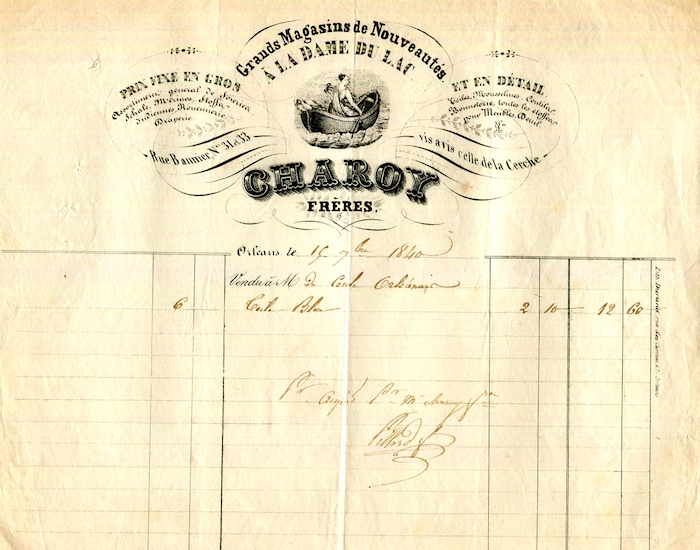 Grands Magasins de Nouveautés.
À LA DAME DU LAC
PRIX FIXE EN GROS
Assortiment général de Soieries,
Schals, Mérinos, Stoffs,
Indiennes, Rouennerie,
Draperie
ET EN DÉTAIL
Toiles, Mousselines, Coutils,
Bonneterie, toutes les étoffes
pour Meubles, Deuil,
&c
Rue Bannier, Nos 31 et 33
vis avis celle de la Cerche.
CHAROY
FRÈRES.
Orléans, le 15 7bre 1840
Vendu à M de
6 Toile Bleu 2 10 12 60
pr pr Mr